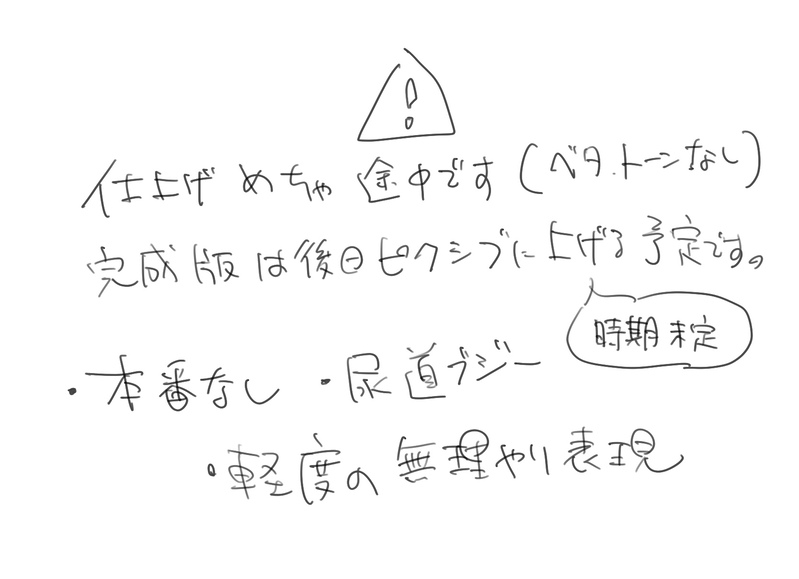 !
仕上げめちゃ途中です(ベタ.トーンなし)
完成版は後日ピクシブに上げる予定です。
時期未定
・本番なし ・尿道ブジー
・軽度の無理やり表現